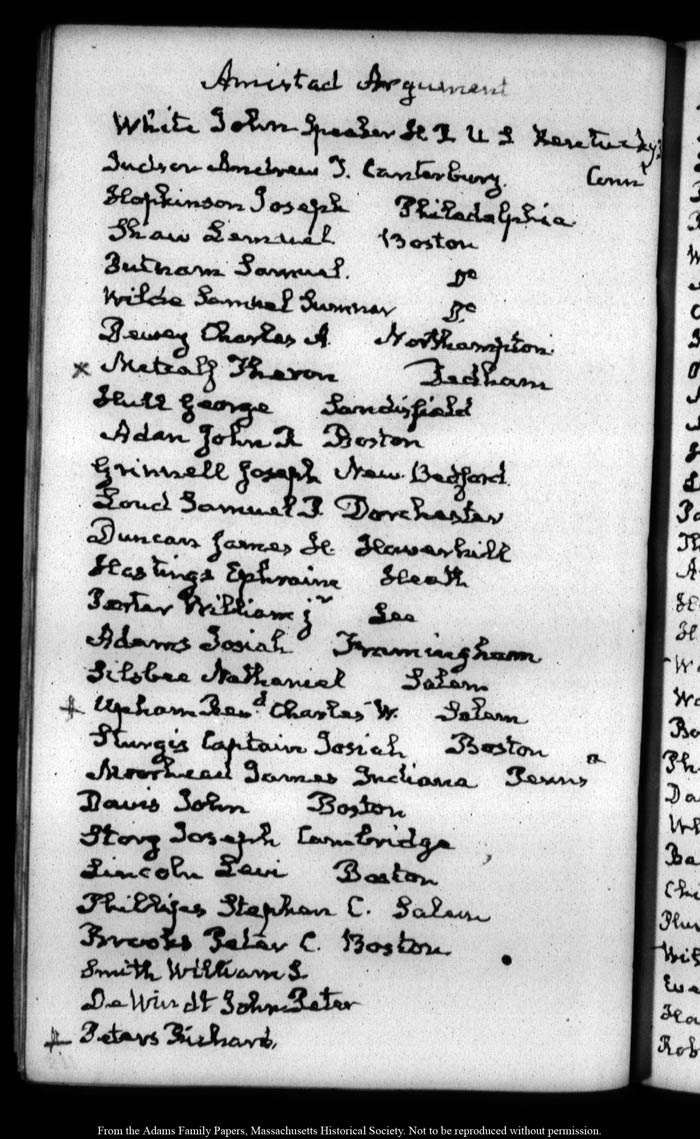 Amistad Argument
White John Speaker H R U S Kentucky
Judson Andrew T. Canterbury. Connt
Hopkinson Joseph Philadelphia
Shaw Lemuel Boston
Putnam Samuel. Do
Wilde Samuel Sumner Do
Dewey Charles A. Northampton
x Metcalf Theron Dedham
Hull George Sandisfield
Adan John R Boston
Grinnell Joseph New Bedford
Loud Samuel P. Dorchester
Duncan James H. Haverhill
Hastings Ephraim Heath
Porter William jr Lee
Adams Josiah Framingham
Silsbee Nathaniel Salem
+ Upham Revd Charles W. Salem
Sturgis Captain Josiah Boston
Moorhead James Indiana Pennsa
Davis John Boston
Story Joseph Cambridge
Lincoln Levi Boston
Phillips Stephen C. Salem
Brooks Peter C. Boston
Smith William S.
De Windt John Peter
+ Peters Richard,
From the Adams Family Papers, Massachusetts Historical Society. Not to be reproduced without permission.